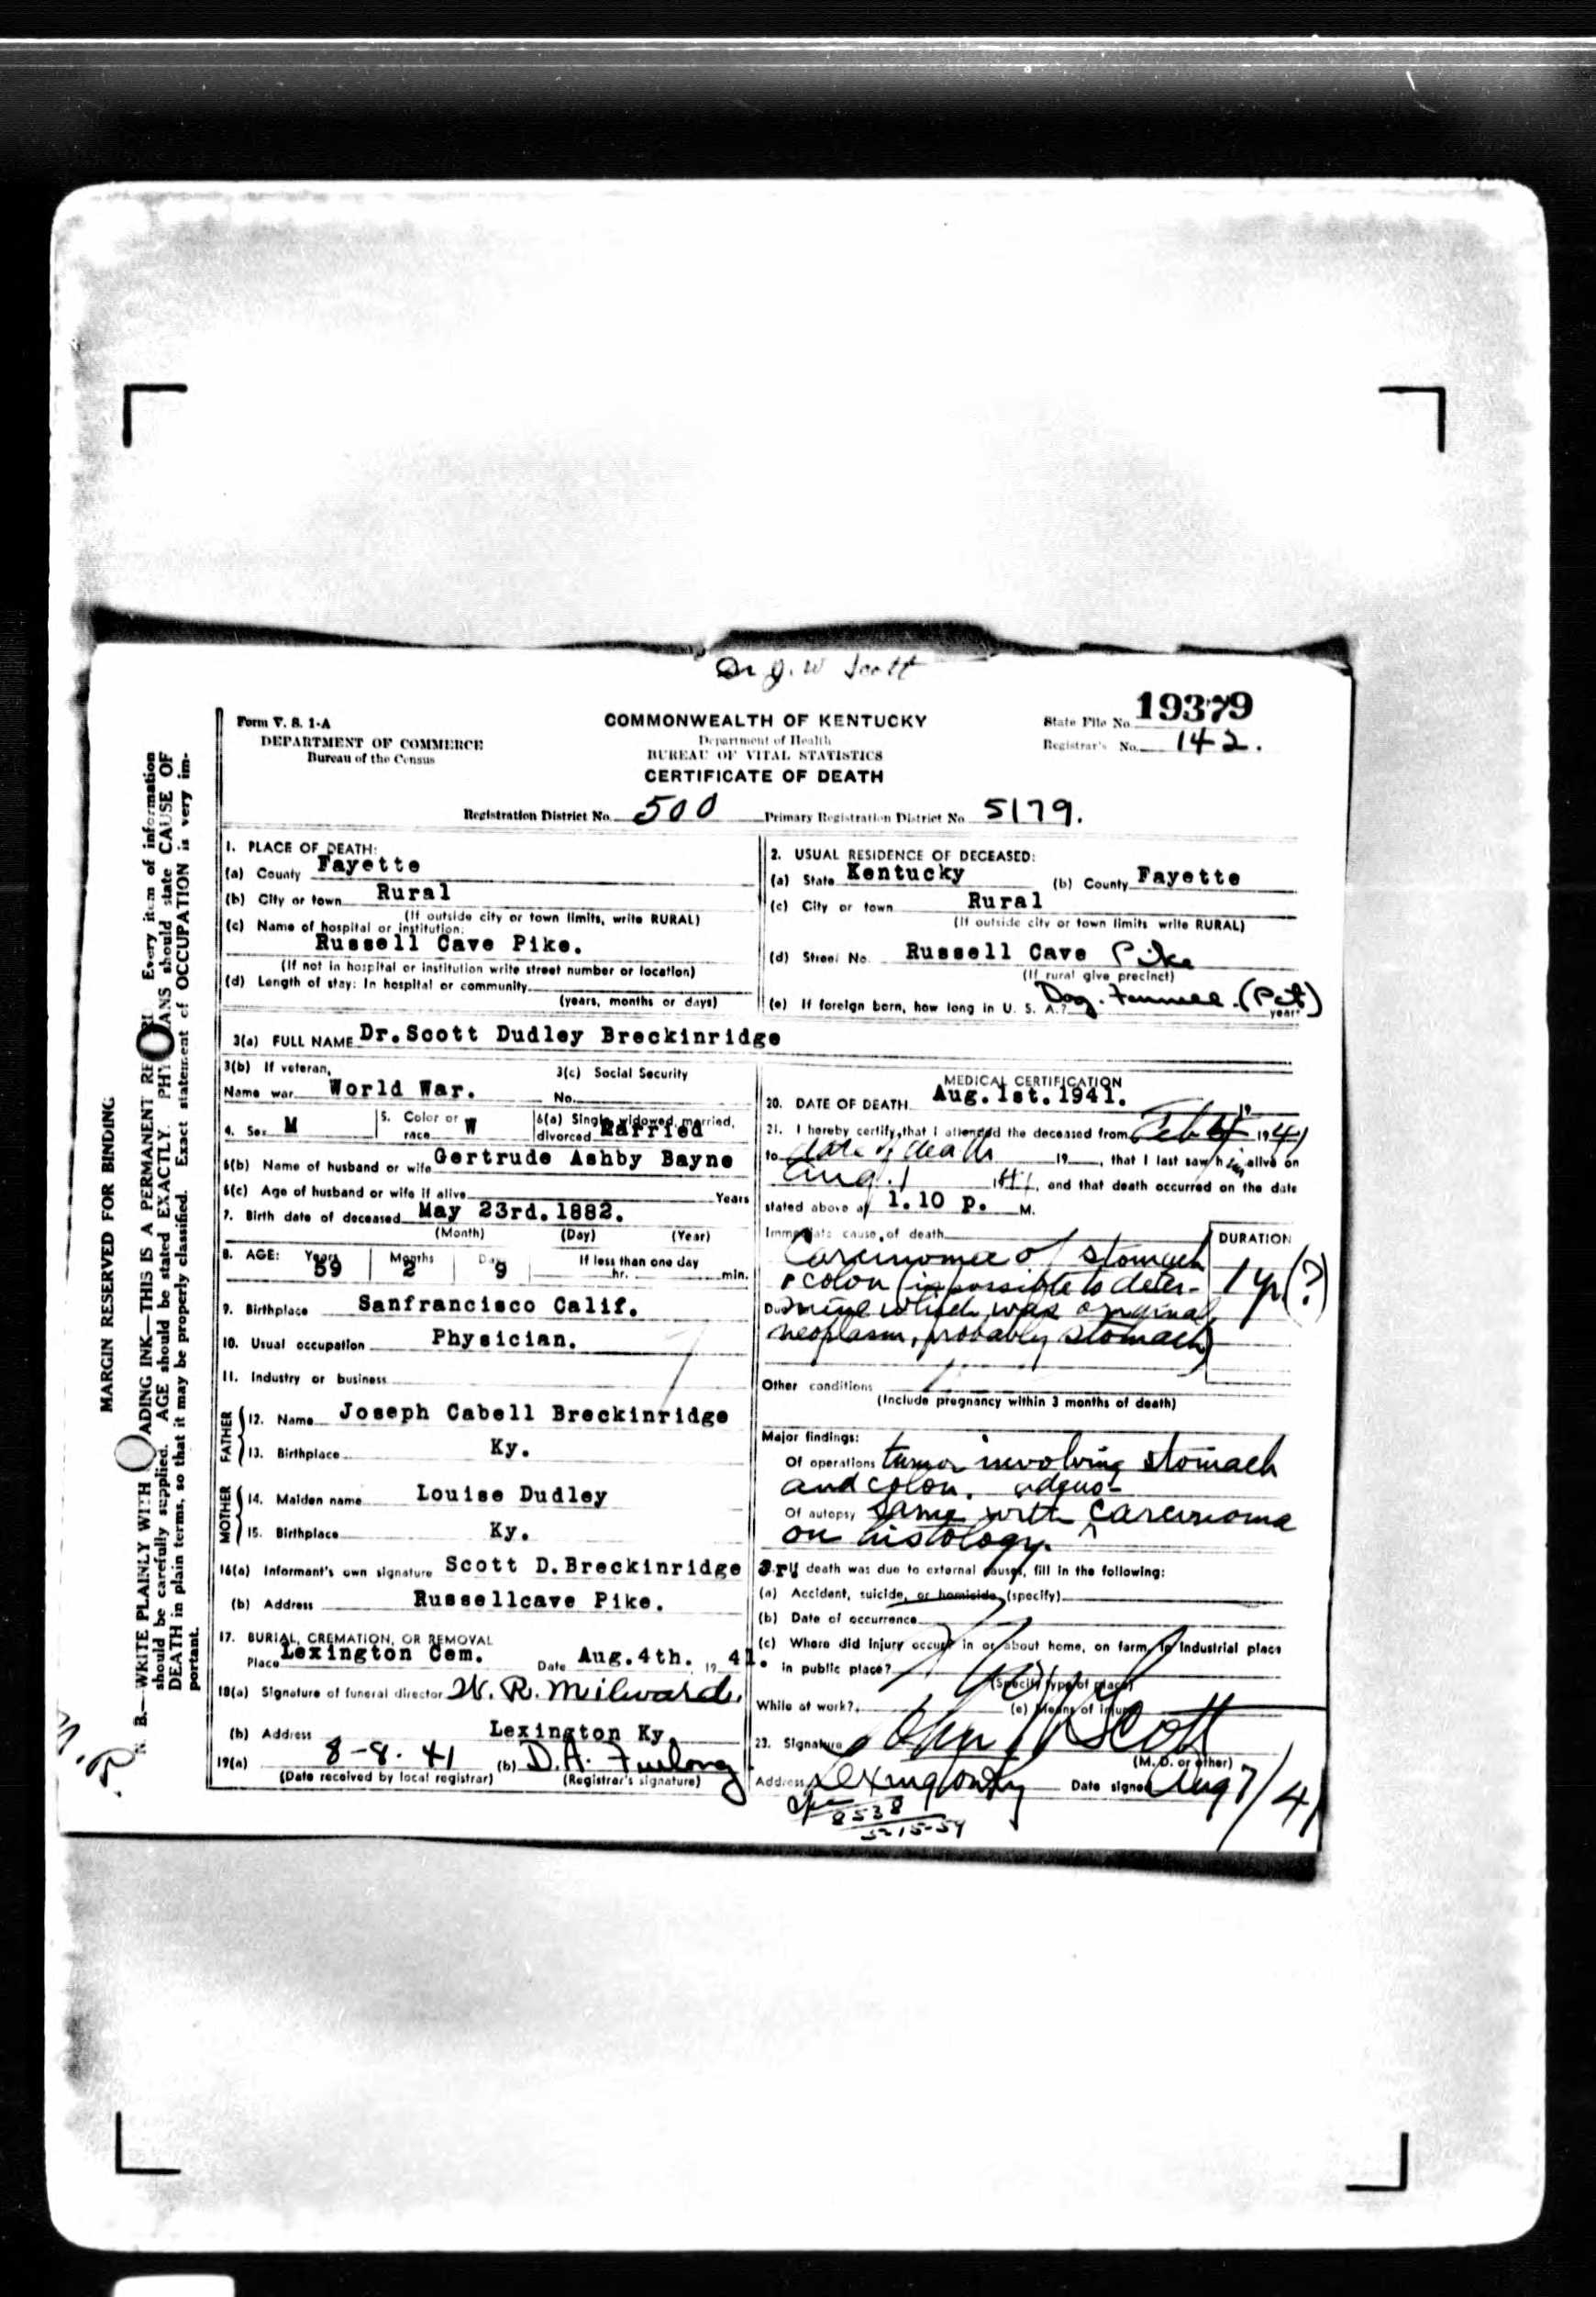 Dr J. W Scott
Form V. S. 1-A
DEPARTMENT OF COMMERCE
Bureau of the Census
COMMONWEALTH OF KENTUCKY
Department of Health
BUREAU OF VITAL STATISTICS
CERTIFICATE OF DEATH
State File No. 19379
Registrar's No. 142.
Registration District No. 500 Primary Registration District No. 5179.
MARGIN RESERVED FOR BINDING
N. B.—WRITE PLAINLY WITH ADING INK—THIS IS A PERMANENT RE Every item of information
should be carefully supplied. AGE should be stated EXACTLY. PHY ANS should state CAUSE OF
DEATH in plain terms, so that it may be properly classified. Exact statement of OCCUPATION is very im-
portant.
1. PLACE OF DEATH:
(a) County Fayette
(b) City or town Rural
(If outside city or town limits, write RURAL)
(c) Name of hospital or institution:
Russell Cave Pike.
(If not in hospital or institution write street number or location)
(d) Length of stay: In hospital or community
(years, months or days)
2. USUAL RESIDENCE OF DECEASED:
(a) State Kentucky (b) County Fayette
(c) City or town Rural
(If outside city or town limits write RURAL)
(d) Street No. Russell Cave Pike
(If rural give precinct)
(e) If foreign born, how long in U. S. A.? years
3(a) FULL NAME Dr. Scott Dudley Breckinridge
3(b) If veteran,
Name war World War.
3(c) Social Security
No.
4. Sex M
5. Color or race W
6(a) Single, widowed, married, divorced Married
6(b) Name of husband or wife Gertrude Ashby Bayne
6(c) Age of husband or wife if alive Years
7. Birth date of deceased May 23rd. 1882.
(Month) (Day) (Year)
8. AGE: Years 59 Months 2 Days 9 If less than one day
hr. min.
9. Birthplace Sanfrancisco Calif.
10. Usual occupation Physician.
11. Industry or business
FATHER
12. Name Joseph Cabell Breckinridge
13. Birthplace Ky.
MOTHER
14. Maiden name Louise Dudley
15. Birthplace Ky.
16(a) Informant's own signature Scott D. Breckinridge
(b) Address Russellcave Pike.
17. BURIAL, CREMATION, OR REMOVAL
Place Lexington Cem. Date Aug. 4th. 19 41.
18(a) Signature of funeral director W. R. Milward.
(b) Address Lexington Ky.
19(a) 8-8-41 (b) D. A. Furlong
(Date received by local registrar) (Registrar's signature)
MEDICAL CERTIFICATION
20. DATE OF DEATH Aug. 1st. 1941. 19
21. I hereby certify, that I attended the deceased from Feb 1941
to date of death 19 , that I last saw him alive on
Aug. 1 1941, and that death occurred on the date
stated above at 1.10 P. M.
Immediate cause of death
DURATION
Carcinoma of stomach
& colon (impossible to deter-
1 yr (?)
Due
mine which was original
neoplasm, probably stomach)
Other conditions
(Include pregnancy within 3 months of death)
Major findings:
Of operations tumor involving stomach
and colon. adeno-
Of autopsy same with carcinoma
on histology.
If death was due to external causes, fill in the following:
(a) Accident, suicide, or homicide (specify)
(b) Date of occurrence
(c) Where did injury occur in or about home, on farm, in industrial place
in public place?
(Specify type of place)
While at work? (e) Means of injury
23. Signature John W Scott
(M. D. or other)
Address Lexington Ky Date signed Aug 7/41
8538
5-15-59